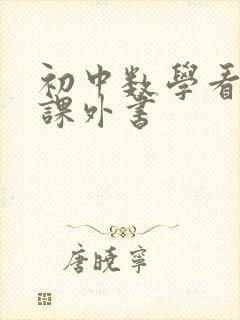 初中数學看
課外書
唐曉寧